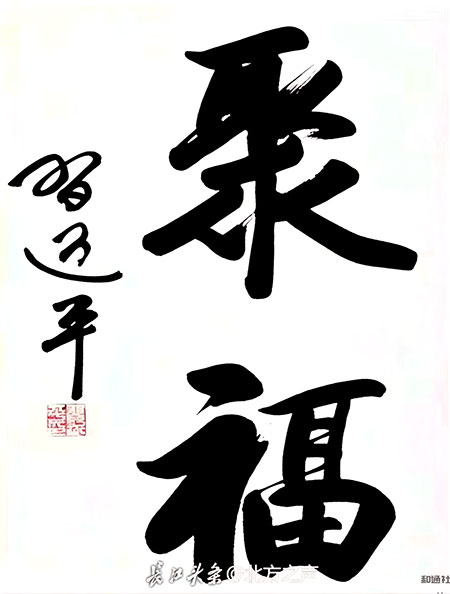 聚福
習遠平
長江头条
@北方之声
和通社